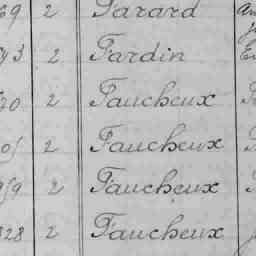 69 2 Farard
2 Fardin
2 Faucheux
2 Faucheux
2 Faucheux
328 2 Faucheux